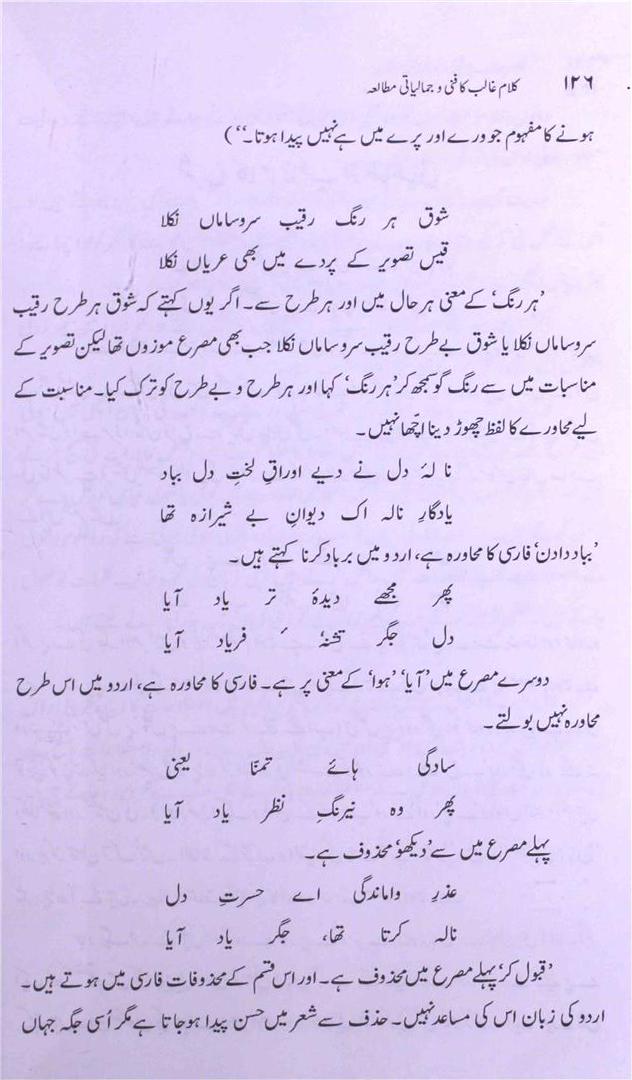 ۱۲۶ کلام غالب کا فنی و جمالیاتی مطالعہ
ہونے کا مفہوم جو ورے اور پرے میں ہے نہیں پیدا ہوتا۔‘‘)
شوق ہر رنگ رقیب سروساماں نکلا
قیس تصویر کے پردے میں بھی عریاں نکلا
’ہر رنگ‘ کے معنی ہر حال میں اور ہر طرح سے۔ اگر یوں کہتے کہ شوق ہر طرح رقیب
سروساماں نکلا یا شوق بے طرح رقیب سروساماں نکلا جب بھی مصرع موزوں تھا لیکن تصویر کے
مناسبات میں سے رنگ گو سمجھ کر ’ہر رنگ‘ کہا اور ہر طرح و بے طرح کو ترک کیا۔ مناسبت کے
لیے محاورے کا لفظ چھوڑ دینا اچّھا نہیں۔
نالۂ دل نے دیے اوراقِ لختِ دل بباد
یادگارِ نالہ اک دیوانِ بے شیرازہ تھا
’بباد دادن‘ فارسی کا محاورہ ہے، اردو میں برباد کرنا کہتے ہیں۔
پھر مجھے دیدۂ تر یاد آیا
دل جگر تشنۂ فریاد آیا
دوسرے مصرع میں ’آیا‘ ’ہوا‘ کے معنی پر ہے۔ فارسی کا محاورہ ہے، اردو میں اس طرح
محاورہ نہیں بولتے۔
سادگی ہائے تمنّا یعنی
پھر وہ نیرنگِ نظر یاد آیا
پہلے مصرع میں سے ’دیکھو‘ محذوف ہے۔
عذرِ واماندگی اے حسرتِ دل
نالہ کرتا تھا، جگر یاد آیا
’قبول کر‘ پہلے مصرع میں محذوف ہے۔ اور اس قسم کے محذوفات فارسی میں ہوتے ہیں۔
اردو کی زبان اس کی مساعد نہیں۔ حذف سے شعر میں حسن پیدا ہوجاتا ہے مگر اُسی جگہ جہاں